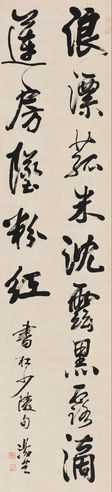 浪漂菰米沈雲黑露滴
蓮房墜粉紅 書杜少陵句